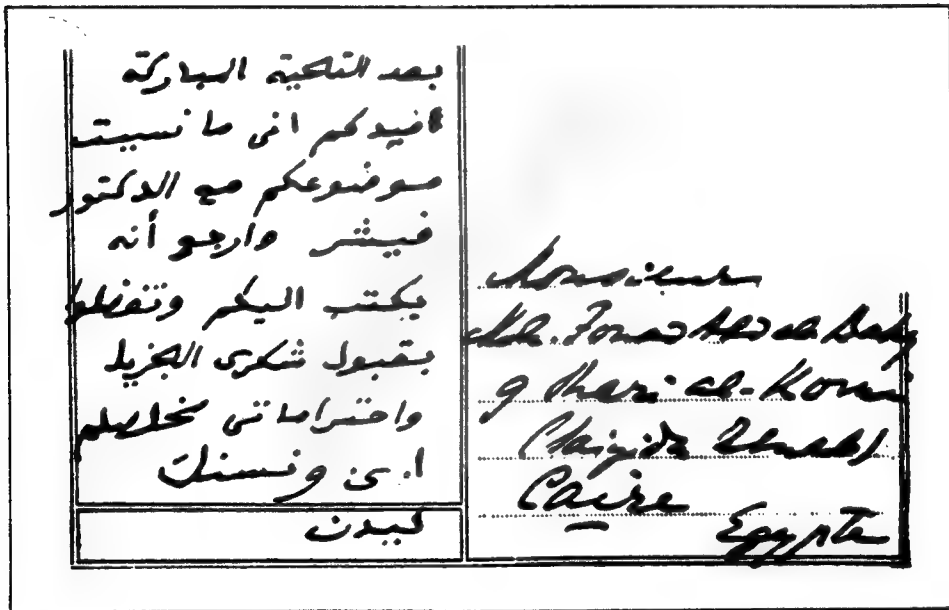 بعد التحية المباركة
افيدكم انى ما نسيت
موضوعكم مع الدكتور
فيشر وارجو أنه
يكتب اليكم وتفضلوا
بقبول شكرى الجزيل
واحتراماتى مخلصكم
ا. ى ونسنك
ليدن
Monsieur
Moh. Fouad Abd al-Baky
9 Shari al-Komi
Saiyida Zeinab
Caire
Egypte